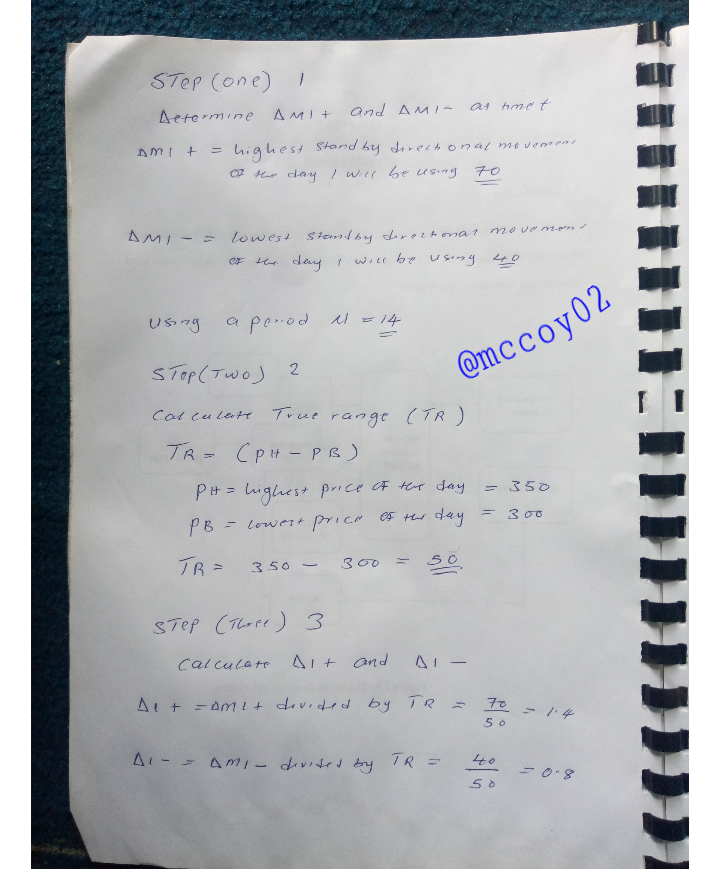 STEP (one) 1
Determine ΔMI+ and ΔMI- at time t
ΔMI + = highest stand by directional movement
of the day I will be using 70
ΔMI - = lowest stand by directional movement
of the day I will be using 40
using a period N = 14
@mccoy02
STEP (TWO) 2
Calculate True range (TR)
TR = (PH - PB)
PH = highest price of the day = 350
PB = lowest price of the day = 300
TR = 350 - 300 = 50
STEP (Three) 3
Calculate ΔI+ and ΔI-
ΔI + = ΔMI+ divided by TR = 70/50 = 1.4
ΔI - = ΔMI- divided by TR = 40/50 = 0.8